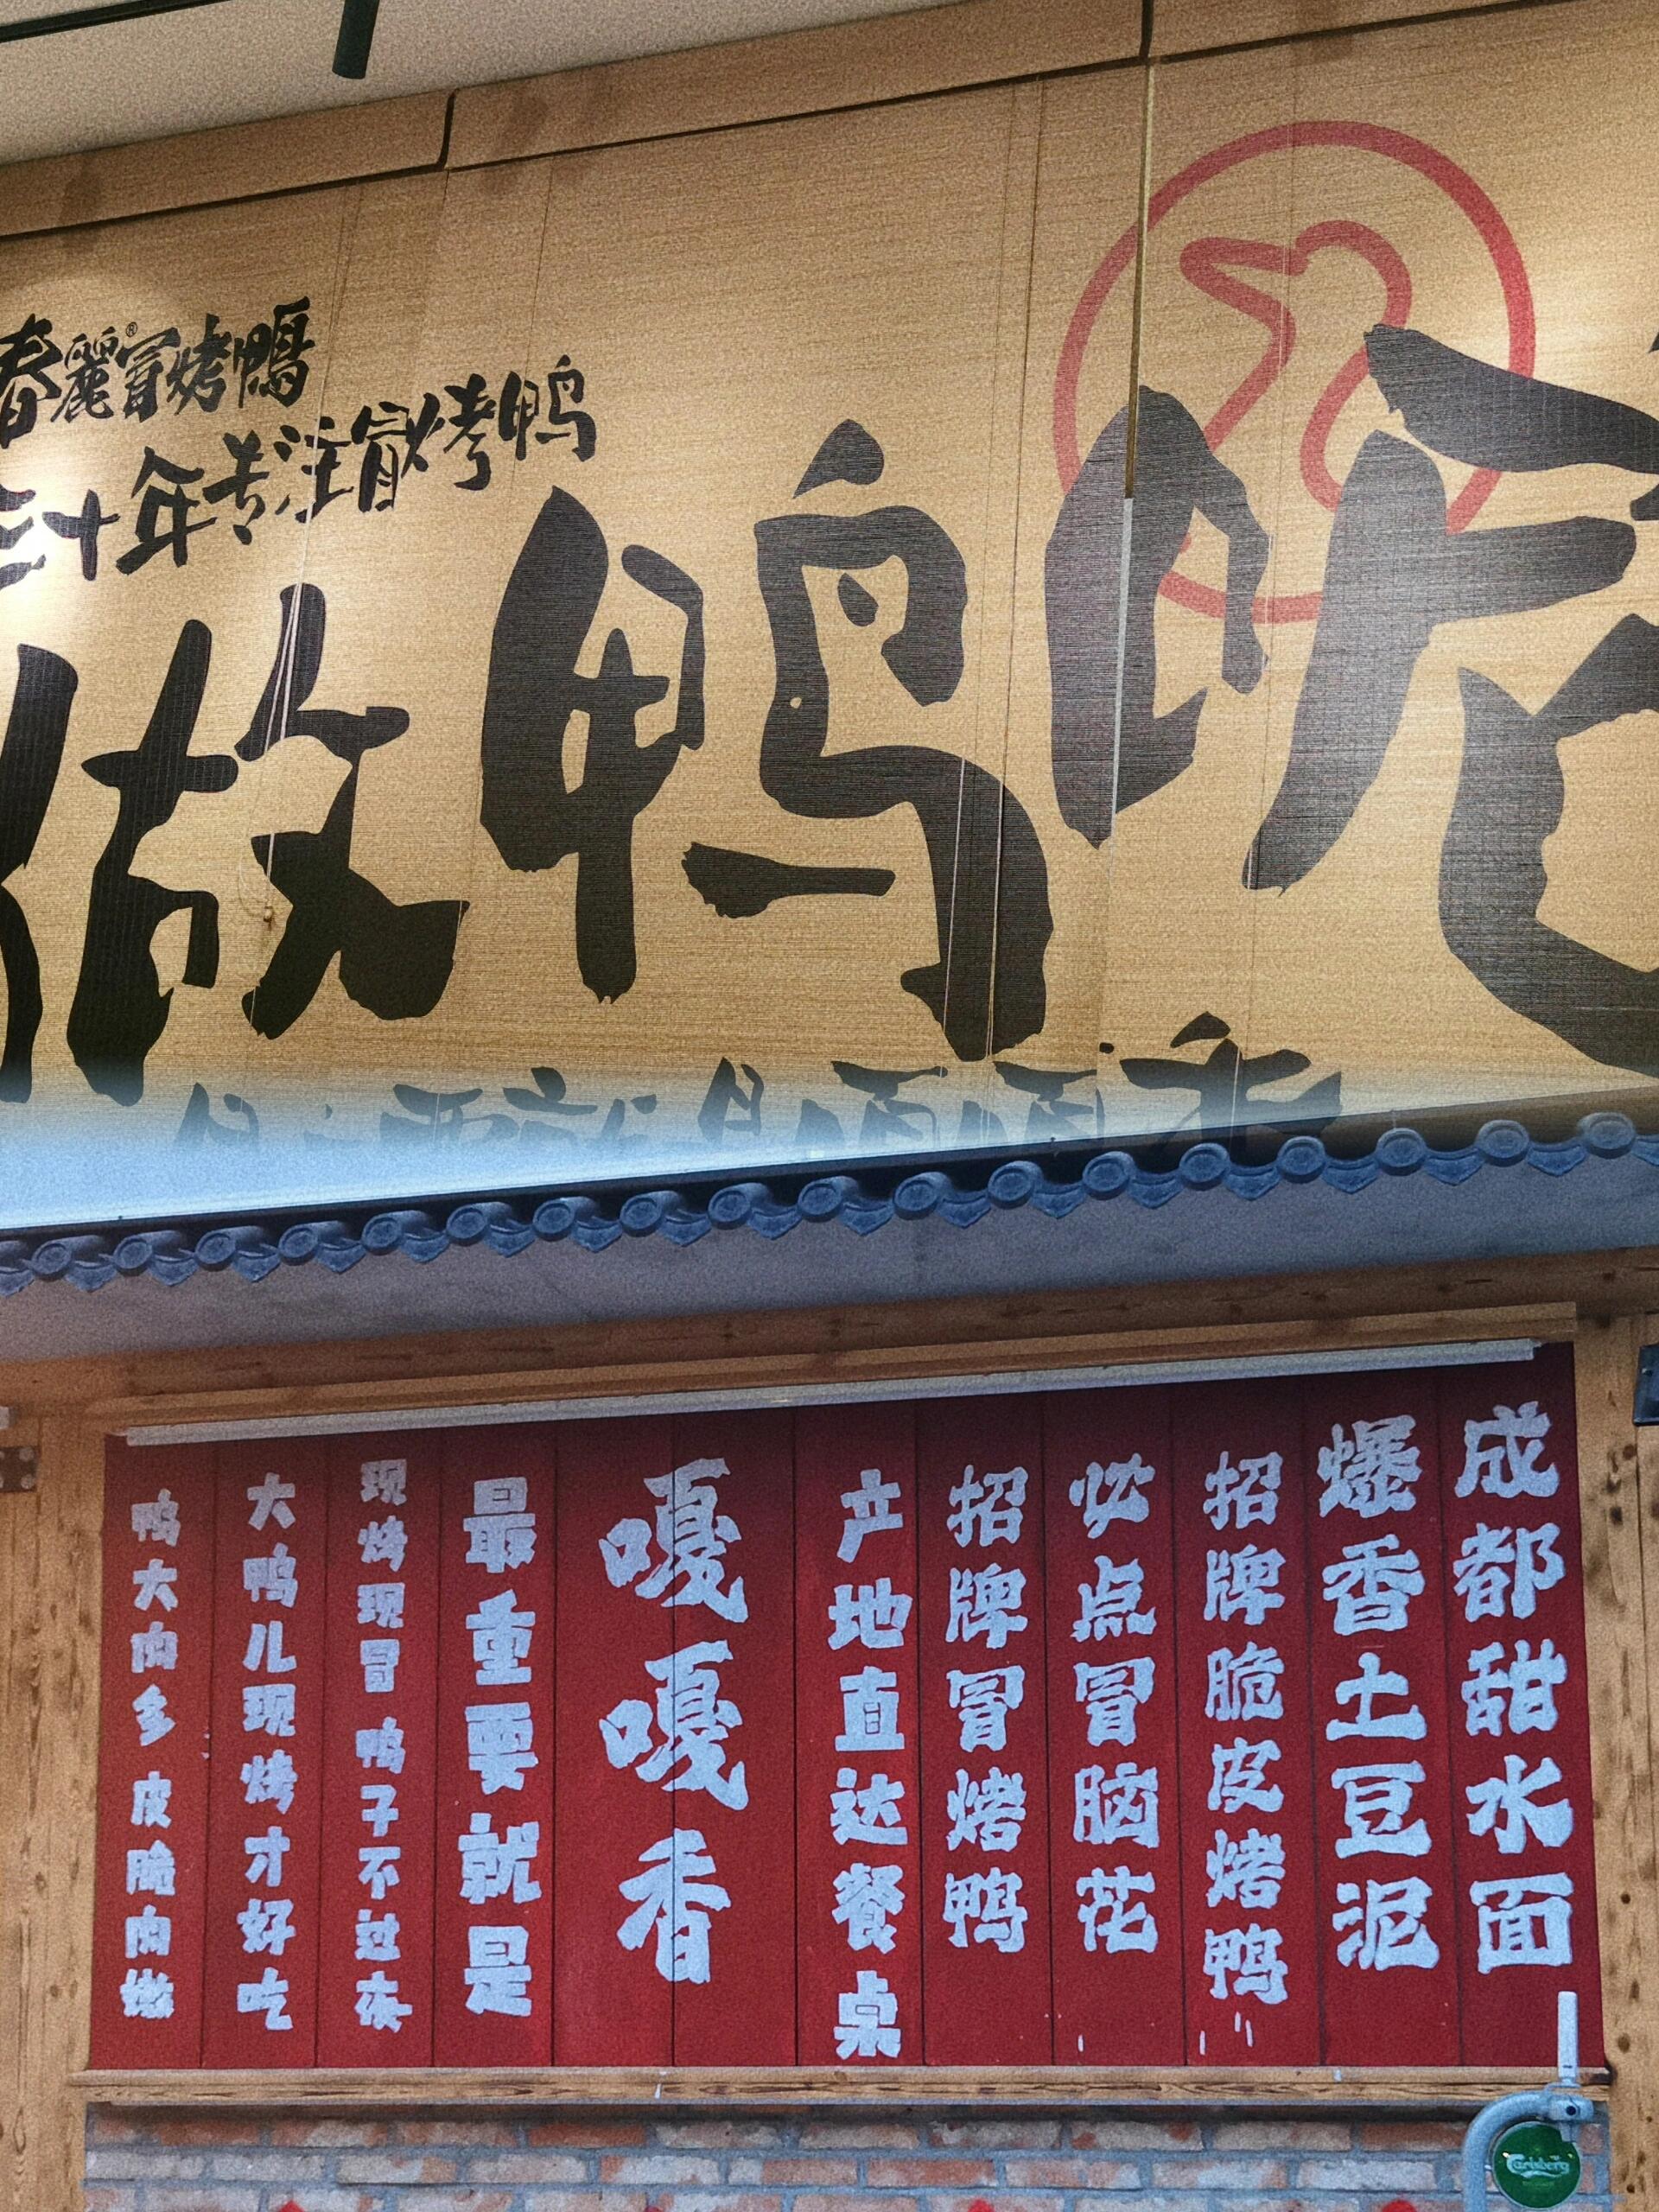 春麗®冒烤鴨
三十年专注冒烤鸭
做鸭
成都甜水面
爆香土豆泥
招牌脆皮烤鸭
必点冒脑花
招牌冒烤鸭
产地直达餐桌
嘎嘎香
最重要就是
现烤现冒 鸭子不过夜
大鸭儿现烤才好吃
鸭大肉多 皮脆肉嫩
Carlsberg